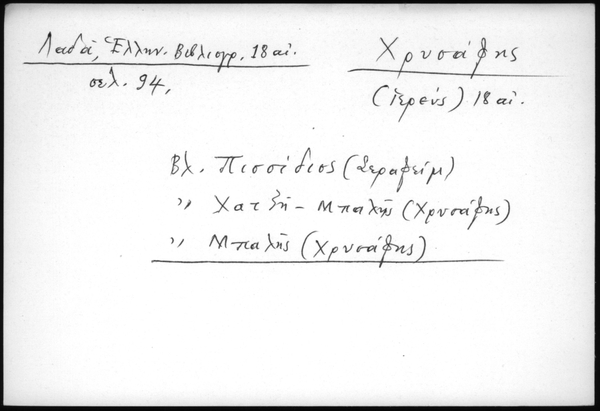 Λαδᾶ, Ἑλλην. Βιβλιογρ. 18 αἰ.
σελ. 94,
Χρυσάφης
(Ἱερεύς) 18 αἰ.
Βλ. Πισσίδιος (Σεραφείμ)
” Χατζῆ - Μπαλῆς (Χρυσάφης)
” Μπαλῆς (Χρυσάφης)